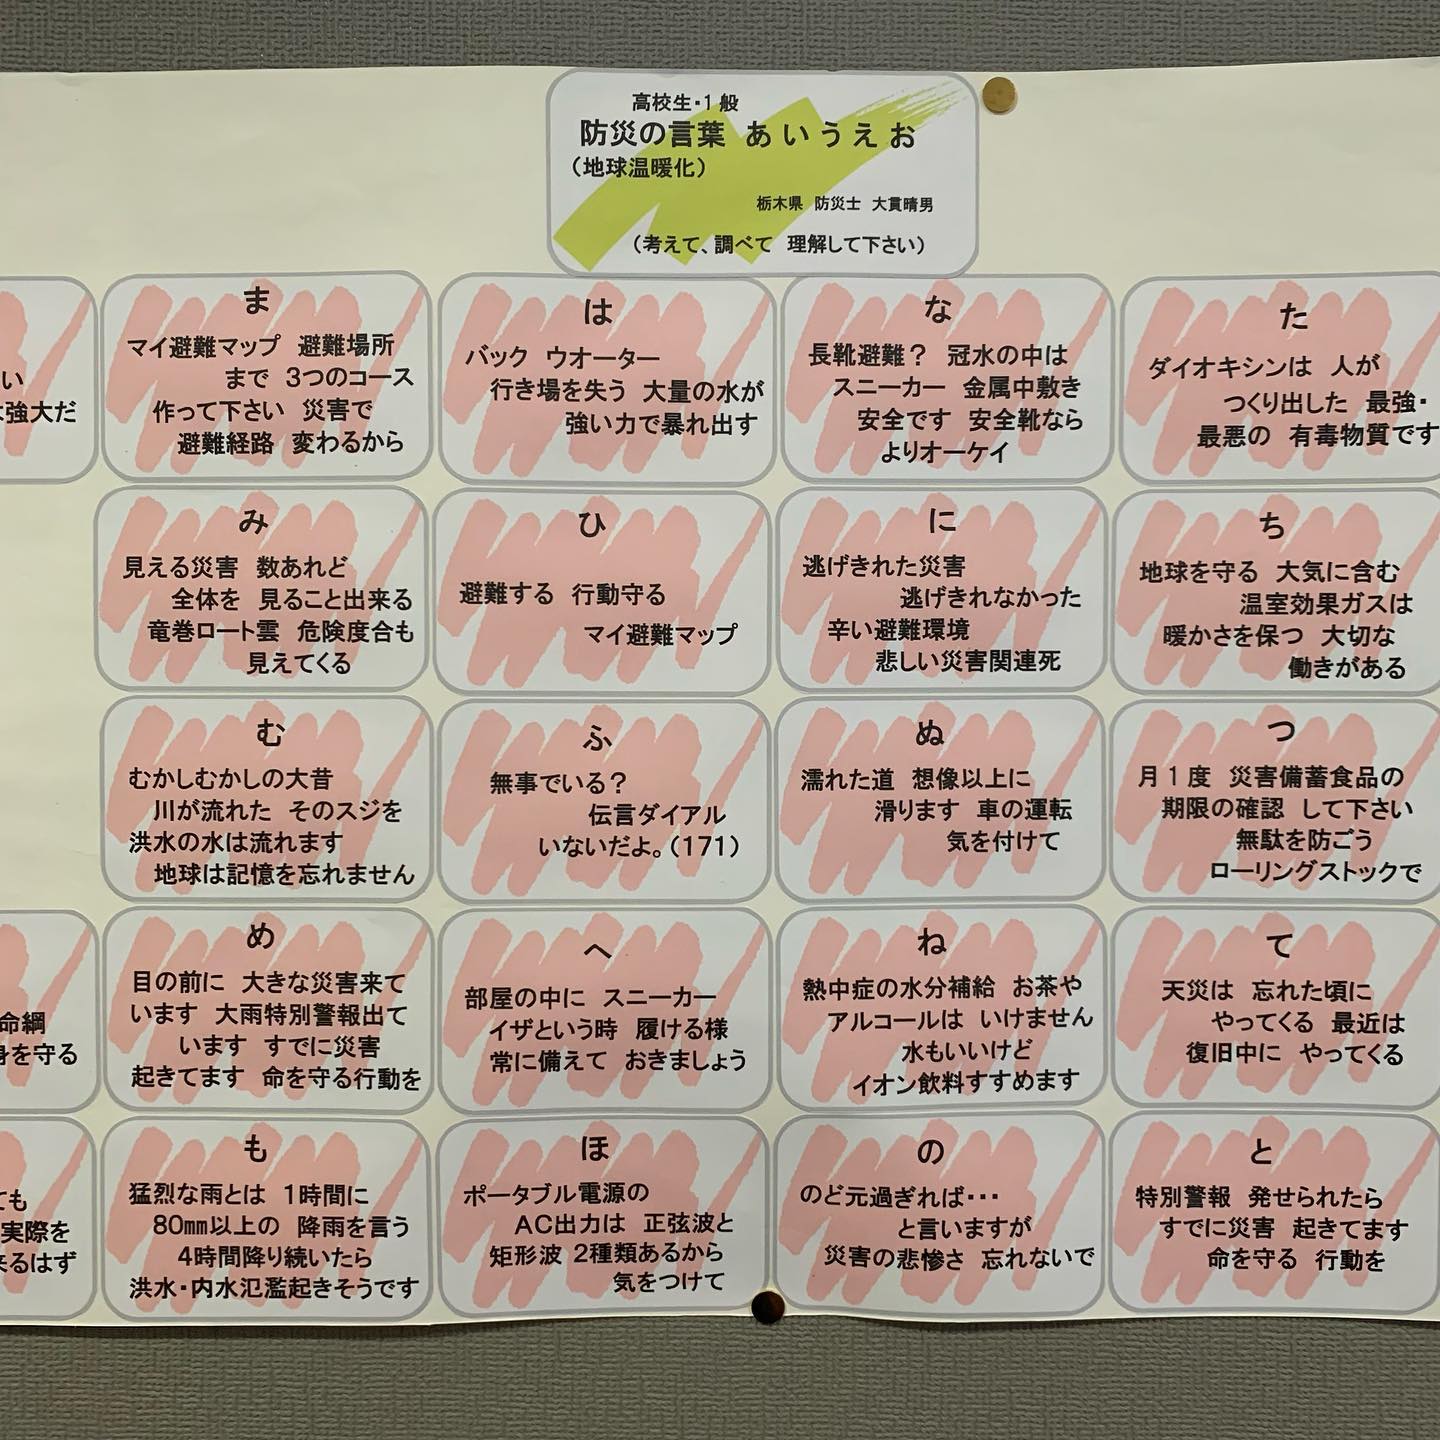 高校生・1般
防災の言葉 あいうえお
(地球温暖化)
栃木県 防災士 大貫晴男
(考えて、調べて 理解して下さい)
た
ダイオキシンは 人が
つくり出した 最強・
最悪の 有毒物質です
ち
地球を守る 大気に含む
温室効果ガスは
暖かさを保つ 大切な
働きがある
つ
月1度 災害備蓄食品の
期限の確認 して下さい
無駄を防ごう
ローリングストックで
て
天災は 忘れた頃に
やってくる 最近は
復旧中に やってくる
と
特別警報 発せられたら
すでに災害 起きてます
命を守る 行動を
な
長靴避難? 冠水の中は
スニーカー 金属中敷き
安全です 安全靴なら
よりオーケイ
に
逃げきれた災害
逃げきれなかった
辛い避難環境
悲しい災害関連死
ぬ
濡れた道 想像以上に
滑ります 車の運転
気を付けて
ね
熱中症の水分補給 お茶や
アルコールは いけません
水もいいけど
イオン飲料すすめます
の
のど元過ぎれば・・・
と言いますが
災害の悲惨さ 忘れないで
は
バック ウオーター
行き場を失う 大量の水が
強い力で暴れ出す
ひ
避難する 行動守る
マイ避難マップ
ふ
無事でいる?
伝言ダイアル
いないだよ。(171)
へ
部屋の中に スニーカー
イザという時 履ける様
常に備えて おきましょう
ほ
ポータブル電源の
AC出力は 正弦波と
矩形波 2種類あるから
気をつけて
ま
マイ避難マップ 避難場所
まで 3つのコース
作って下さい 災害で
避難経路 変わるから
み
見える災害 数あれど
全体を 見ること出来る
竜巻ロート雲 危険度合も
見えてくる
む
むかしむかしの大昔
川が流れた そのスジを
洪水の水は流れます
地球は記憶を忘れません
め
目の前に 大きな災害来て
います 大雨特別警報出て
います すでに災害
起きてます 命を守る行動を
も
猛烈な雨とは 1時間に
80㎜以上の 降雨を言う
4時間降り続いたら
洪水・内水氾濫起きそうです
い
強大だ
命綱
身を守る
ても
実際を
来るはず